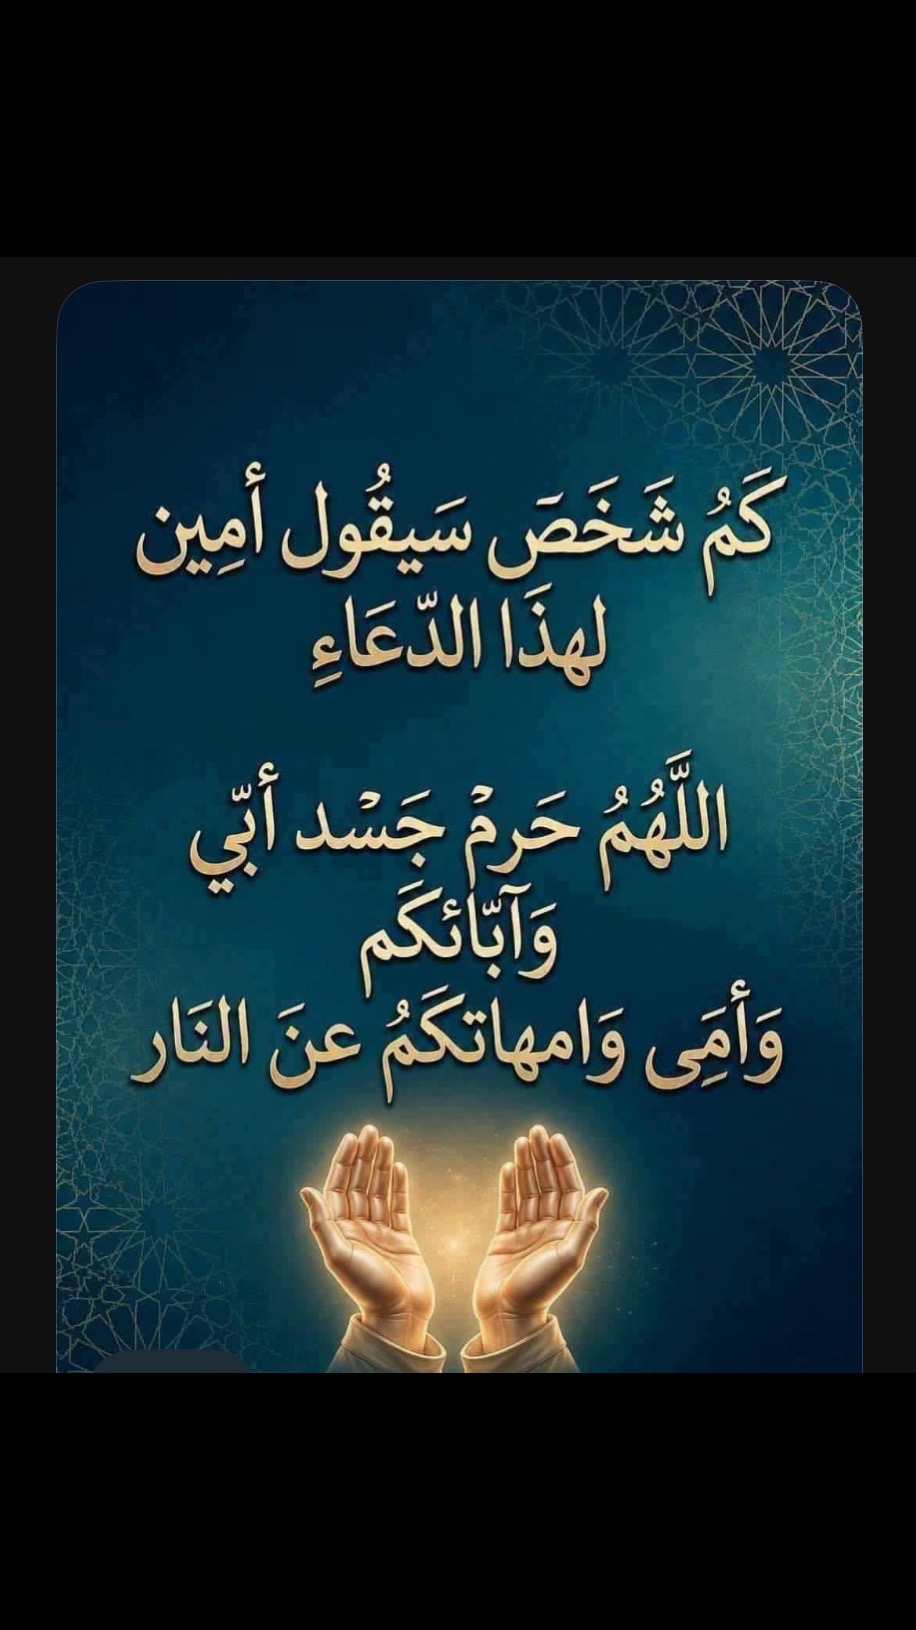 كَمُ شَخَصَ سَيقُول أمِين
لهذَا الدّعَاءِ
اللَّهُمُ حَرمْ جَسْد أبّي
وَآبّائكَم
وَأمَِى وَامهاتكَمُ عنَ النَار